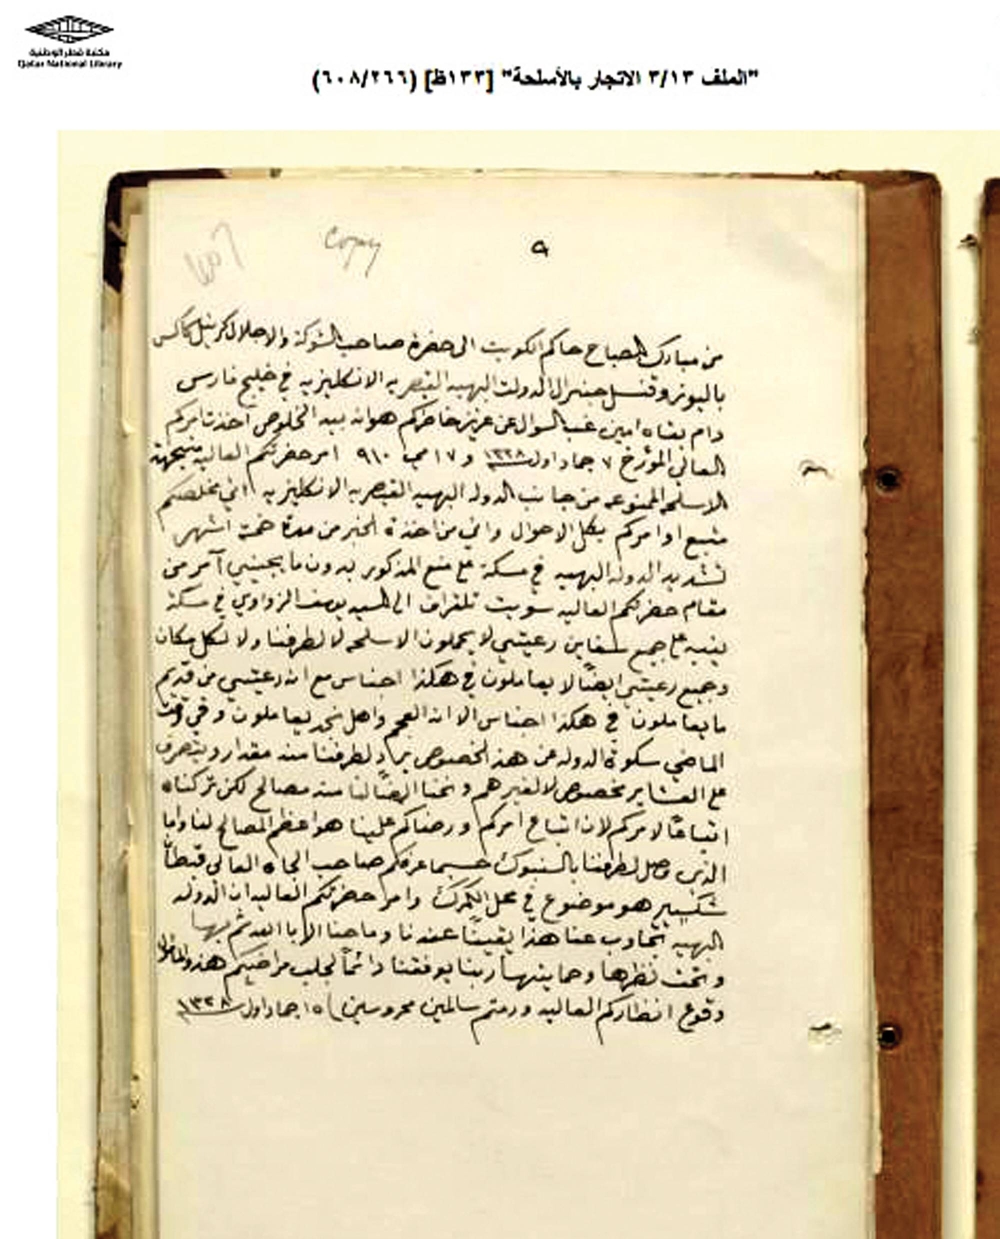 مكتبة قطر الوطنية
Qatar National Library
"الملف ٣/١٣ الاتجار بالأسلحة" [١٣٣ظ] (٦٠٨/٢٦٦)
Copy
٩
من مبارك الصباح حاكم الكويت الى حضرة صاحب الشوكة والاجلال كرنيل كاكس
باليوز وقنسل جنرال الدولت البهيه القيصريه الانكليزيه في خليج فارس
دام بقاه امين غب السوال عن عزيز خاطركم هو انه بيد الخلوص اخذت امركم
العالي المؤرخ ٧ جماد اول ١٣٢٨ و ١٧ مي ٩١٠ امر حضرتكم العاليه من جهة
الاسلحه الممنوعه من جانب الدوله البهيه القيصريه الانكليزيه اني مخلصكم
متبع اوامركم بكل الاحوال واني من اخذة الخبر من مدة خمت اشهر
تشديد الدوله البهيه في مسكة على منع المذكور بدون ما يجيني آمر من
مقام حضرتكم العاليه سويت تلقراف الى السيد يوسف الزواوي في مسكة
ينبه على جميع سفاين رعيتي لا يحملون الاسلحه لا لطرفنا ولا لكل مكان
وجميع رعيتي ايضاً لا يعاملون في هكذا اجناس مع ان رعيتي من قديم
ما يعاملون في هكذا اجناس الا ان العجم واهل نجد يعاملون وفي وقت
الماضي سكوة الدوله عن هذ الخصوص يراد لطرفنا منه مقدار ويتصرف
على العشاير مخصوص لا لغيرهم ونحنا ايضاً لنا منه مصالح لكن تركناه
اتباعاً لامركم لان اتباع امركم ورضاكم علينا هو اعظم المصالح لنا واما
الذي وصل لطرفنا بالسنبوك حسبما عرفكم صاحب الجاه العالي قبطان
شكسبير هو موضوع في محل الكمرك وامر حضرتكم العاليه ان الدوله
البهيه تجاوب عنا هذا يقيناً عندنا وما حنا الا بالله ثم بها
وتحت نظرها وحمايتها ربنا يوفقنا دائماً لجلب مراضيكم هذ والمامول
وقوع انظاركم العاليه ودمتم سالمين محروسين ١٥ جماد اول ١٣٢٨